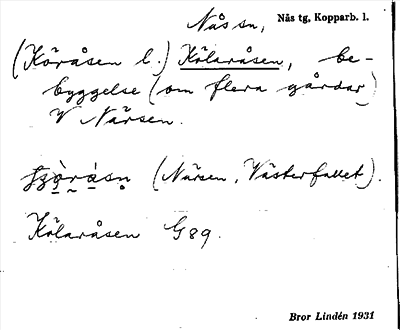 Nås sn, Näs tg, Kopparb. l.
(Köråsen l.) Kölaråsen, be-
byggelse (om flera gårdar)
V Närsen.
(Närsen, Västerfallet).
Kölaråsen G89.
Bror Lindén 1931